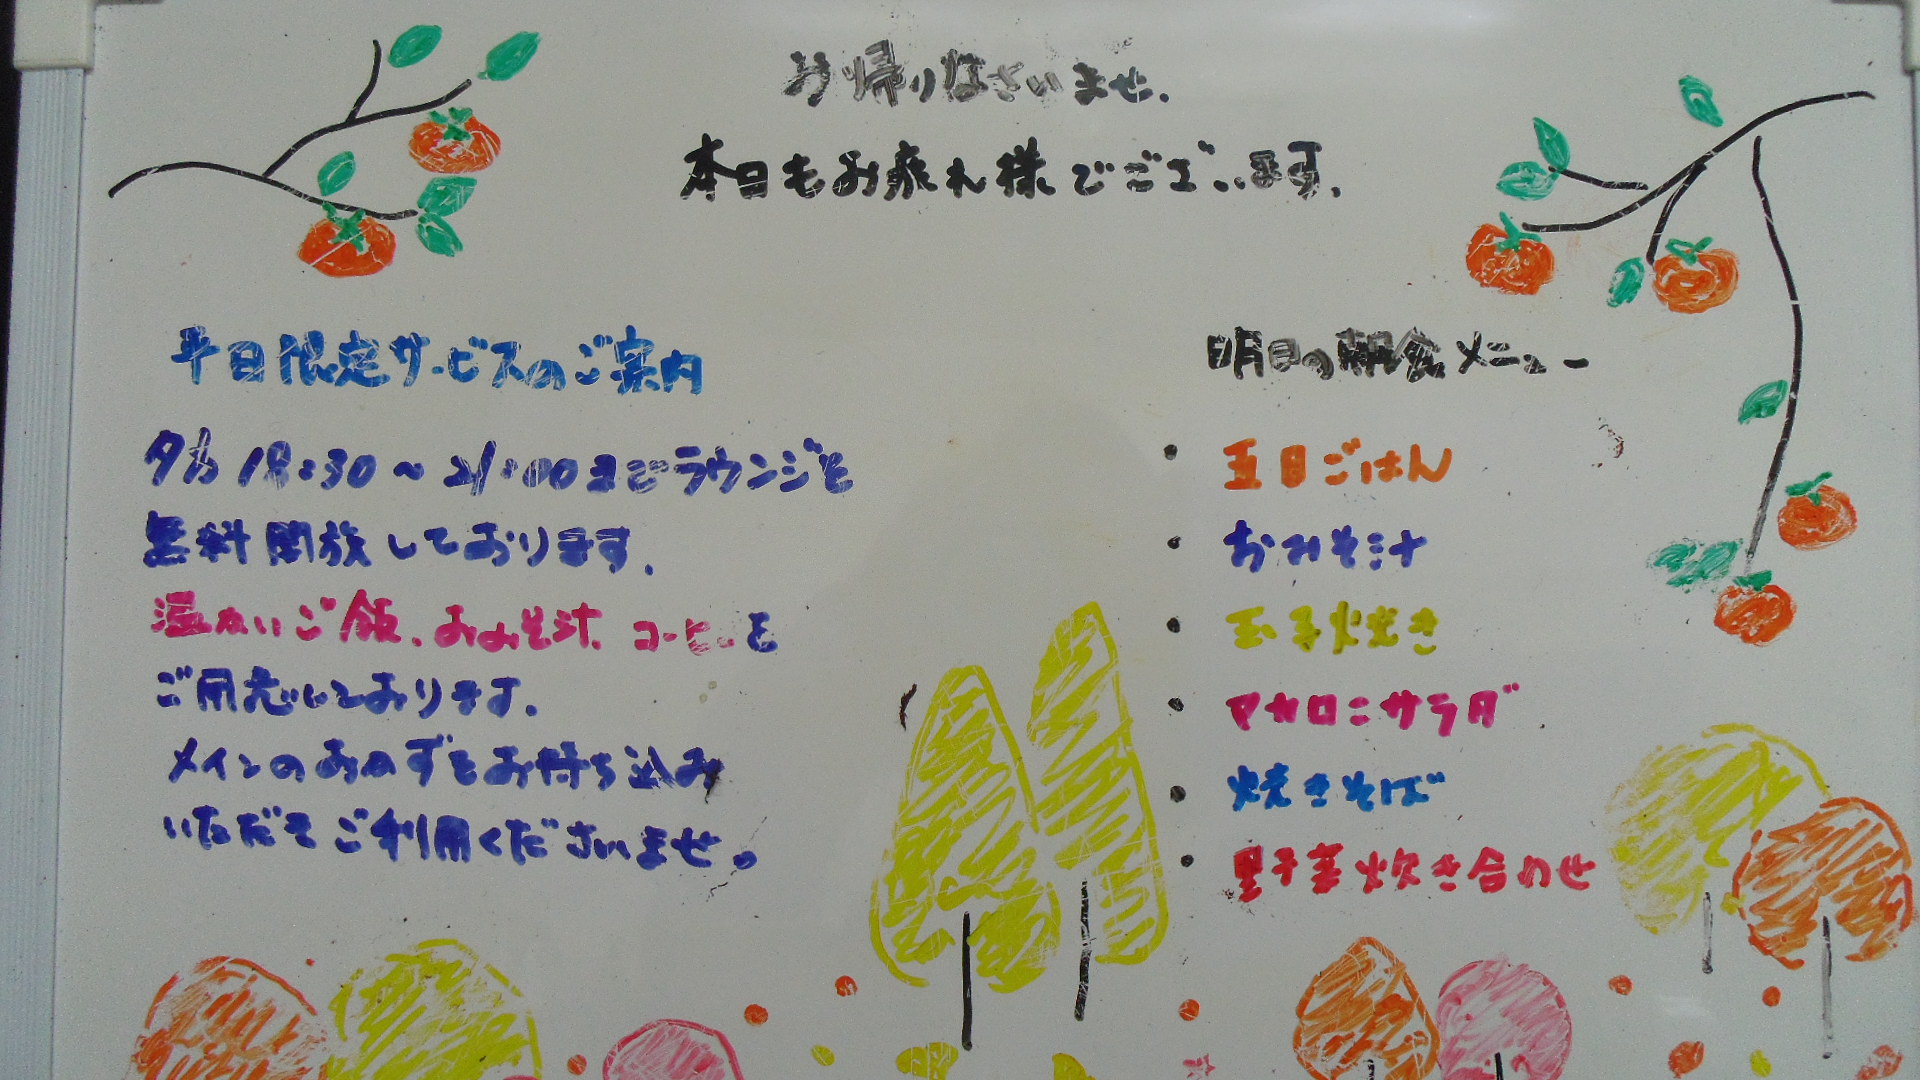 お帰りなさいませ.
本日もお疲れ様でございます.
平日限定サービスのご案内
夕方 18:30～21:00までラウンジを
無料開放しております.
温かいご飯.おみそ汁.コーヒーを
ご用意しております.
メインのおかずをお持ち込み
いただきご利用くださいませ。
明日の朝食メニュー
・五目ごはん
・おみそ汁
・玉子焼き
・マカロニサラダ
・焼きそば
・野菜炊き合わせ